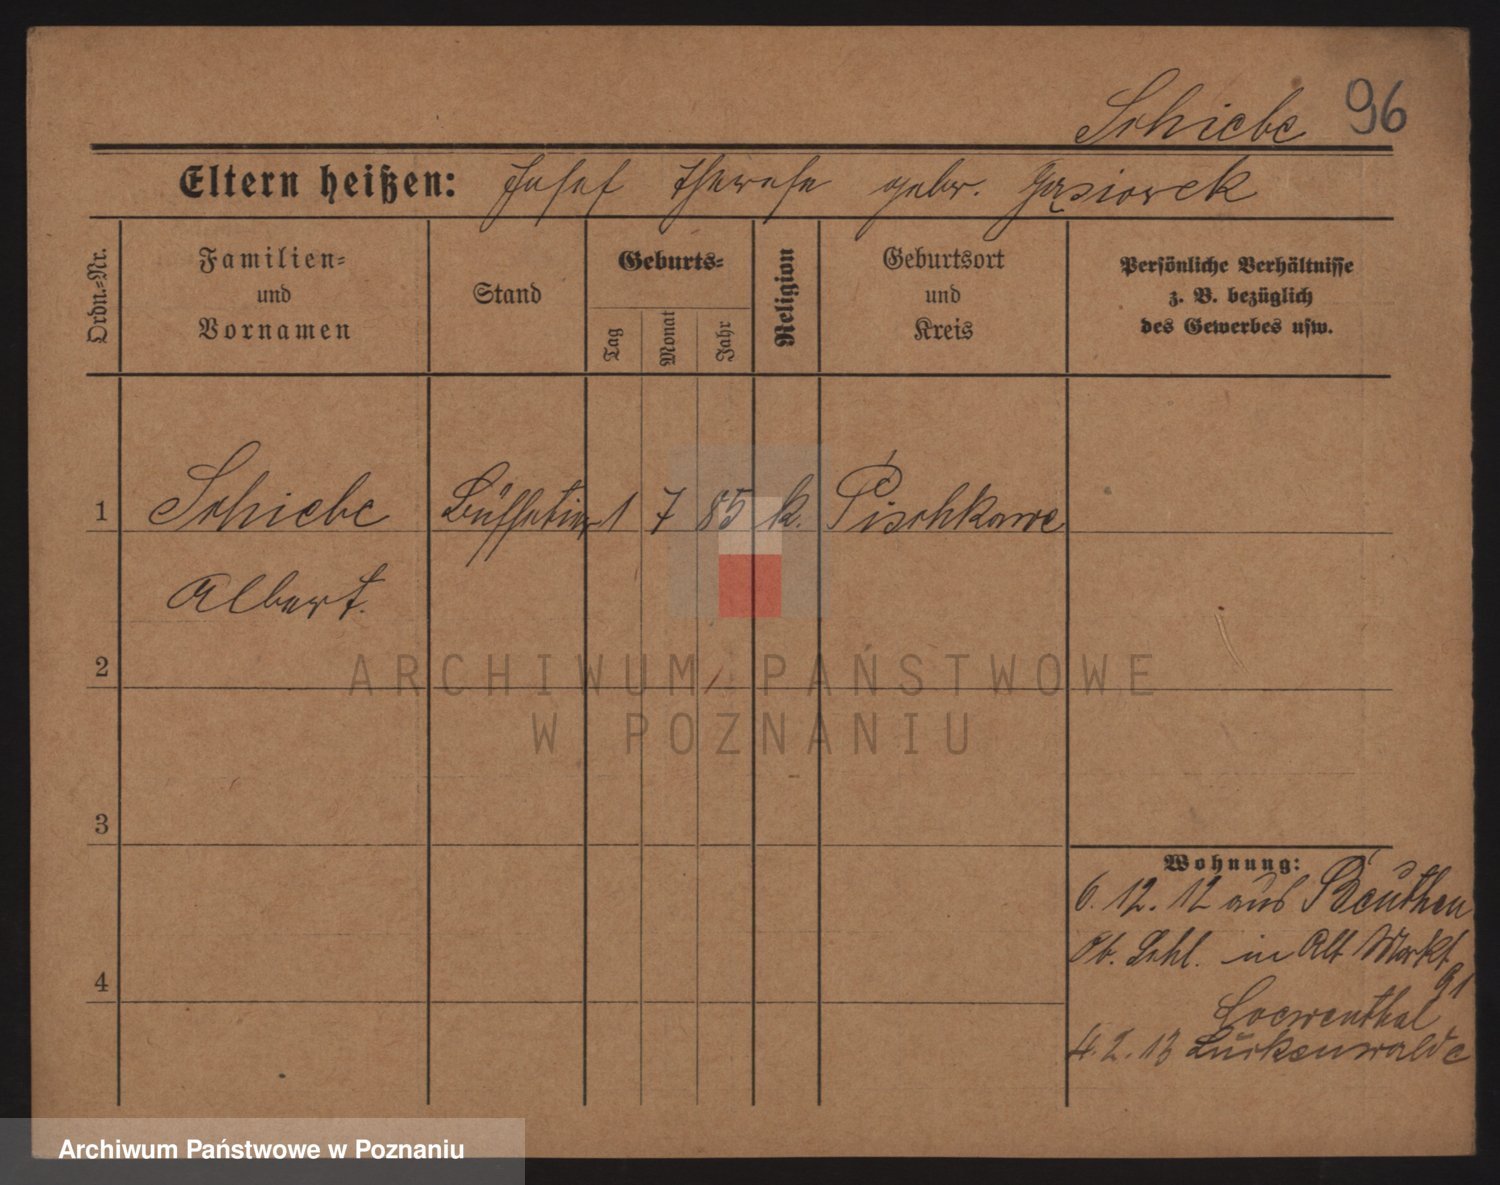 Schiebe 96
Eltern heißen: Josef Therese gebor. Gąsiorek
Ordn.-Nr.
Familien-
und
Vornamen
Stand
Geburts-
Tag
Monat
Jahr
Religion
Geburtsort
und
Kreis
Persönliche Verhältnisse
z. B. bezüglich
des Gewerbes usw.
1 Schiebe Büffetier 1 7 85 k. Pischkowe
Albert.
2
3
4
Wohnung:
6. 12. 12 aus Beuthen
Ob. Schl. in Alt Markt
91
Loewenthal
4. 2. 13 Luckenwalde
ARCHIWUM PAŃSTWOWE
W POZNANIU
Archiwum Państwowe w Poznaniu